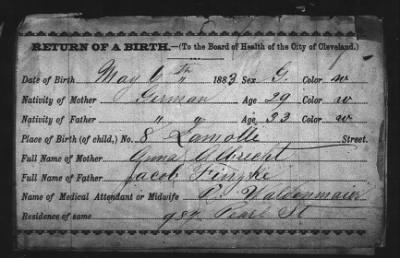 RETURN OF A BIRTH.—(To the Board of Health of the City of Cleveland.)
Date of Birth May 6th 1883 Sex G. Color w
Nativity of Mother German Age 29 Color w
Nativity of Father " " Age 33 Color w
Place of Birth (of child,) No. 8 Lamolle Street.
Full Name of Mother Anna Albrecht
Full Name of Father Jacob
Name of Medical Attendant or Midwife
Residence of same Pearl St